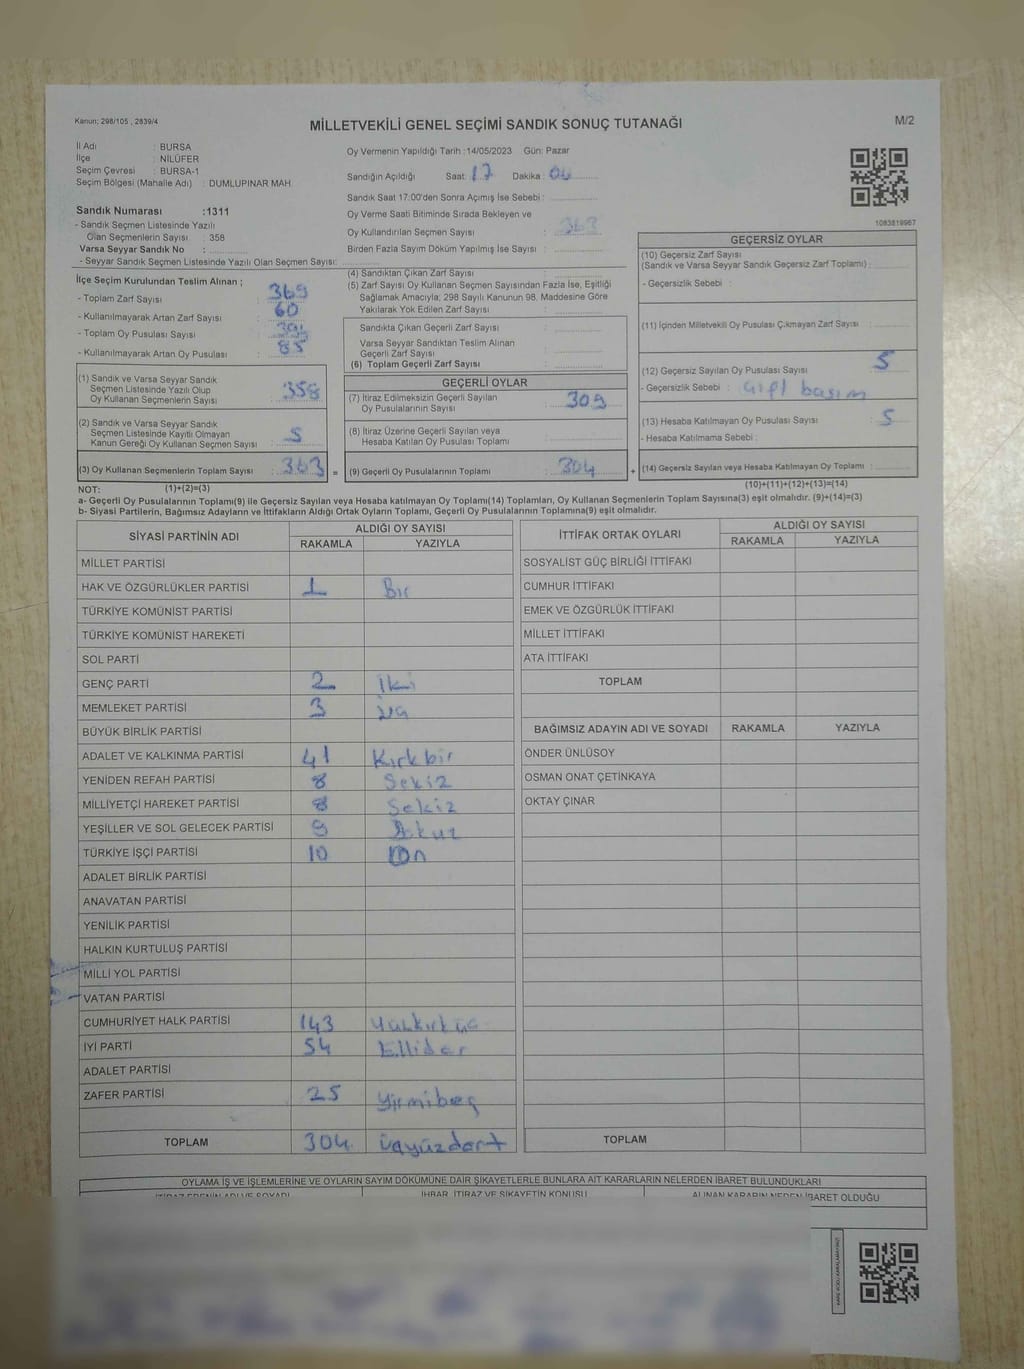 Kanun; 298/105 , 2839/4
MİLLETVEKİLİ GENEL SEÇİMİ SANDIK SONUÇ TUTANAĞI
M/2
İl Adı : BURSA
İlçe : NİLÜFER
Seçim Çevresi : BURSA-1
Seçim Bölgesi (Mahalle Adı) : DUMLUPINAR MAH.
Sandık Numarası :1311
- Sandık Seçmen Listesinde Yazılı
Olan Seçmenlerin Sayısı : 358
Varsa Seyyar Sandık No :
- Seyyar Sandık Seçmen Listesinde Yazılı Olan Seçmen Sayısı:
Oy Vermenin Yapıldığı Tarih :14/05/2023 Gün: Pazar
Sandığın Açıldığı Saat : 17 Dakika :
Sandık Saat 17:00'den Sonra Açımış İse Sebebi :
Oy Verme Saati Bitiminde Sırada Bekleyen ve
Oy Kullandırılan Seçmen Sayısı : 363
Birden Fazla Sayım Döküm Yapılmış İse Sayısı :
1083819967
İlçe Seçim Kurulundan Teslim Alınan ;
- Toplam Zarf Sayısı : 369
- Kullanılmayarak Artan Zarf Sayısı : 60
- Toplam Oy Pusulası Sayısı :
- Kullanılmayarak Artan Oy Pusulası : 85
(1) Sandık ve Varsa Seyyar Sandık
Seçmen Listesinde Yazılı Olup
Oy Kullanan Seçmenlerin Sayısı : 358
(2) Sandık ve Varsa Seyyar Sandık
Seçmen Listesinde Kayıtlı Olmayan
Kanun Gereği Oy Kullanan Seçmen Sayısı : 5
(3) Oy Kullanan Seçmenlerin Toplam Sayısı : 363 =
(4) Sandıktan Çıkan Zarf Sayısı :
(5) Zarf Sayısı Oy Kullanan Seçmen Sayısından Fazla İse, Eşitliği
Sağlamak Amacıyla; 298 Sayılı Kanunun 98. Maddesine Göre
Yakılarak Yok Edilen Zarf Sayısı :
Sandıkta Çıkan Geçerli Zarf Sayısı :
Varsa Seyyar Sandıktan Teslim Alınan
Geçerli Zarf Sayısı :
(6) Toplam Geçerli Zarf Sayısı :
GEÇERLİ OYLAR
(7) İtiraz Edilmeksizin Geçerli Sayılan
Oy Pusulalarının Sayısı : 309
(8) İtiraz Üzerine Geçerli Sayılan veya
Hesaba Katılan Oy Pusulası Toplamı :
(9) Geçerli Oy Pusulalarının Toplamı : 304 +
GEÇERSİZ OYLAR
(10) Geçersiz Zarf Sayısı
(Sandık ve Varsa Seyyar Sandık Geçersiz Zarf Toplamı) :
- Geçersizlik Sebebi :
(11) İçinden Milletvekili Oy Pusulası Çıkmayan Zarf Sayısı :
(12) Geçersiz Sayılan Oy Pusulası Sayısı : 5
- Geçersizlik Sebebi : Çift basım
(13) Hesaba Katılmayan Oy Pusulası Sayısı : 5
- Hesaba Katılmama Sebebi :
(14) Geçersiz Sayılan veya Hesaba Katılmayan Oy Toplamı :
NOT: (1)+(2)=(3)
(10)+(11)+(12)+(13)=(14)
a- Geçerli Oy Pusulalarının Toplamı(9) ile Geçersiz Sayılan veya Hesaba katılmayan Oy Toplamı(14) Toplamları, Oy Kullanan Seçmenlerin Toplam Sayısına(3) eşit olmalıdır. (9)+(14)=(3)
b- Siyasi Partilerin, Bağımsız Adayların ve İttifakların Aldığı Ortak Oyların Toplamı, Geçerli Oy Pusulalarının Toplamına(9) eşit olmalıdır.
SİYASİ PARTİNİN ADI ALDIĞI OY SAYISI
RAKAMLA YAZIYLA
MİLLET PARTİSİ
HAK VE ÖZGÜRLÜKLER PARTİSİ 1 Bir
TÜRKİYE KOMÜNİST PARTİSİ
TÜRKİYE KOMÜNİST HAREKETİ
SOL PARTİ
GENÇ PARTİ 2 İki
MEMLEKET PARTİSİ 3 üç
BÜYÜK BİRLİK PARTİSİ
ADALET VE KALKINMA PARTİSİ 41 Kırkbir
YENİDEN REFAH PARTİSİ 8 Sekiz
MİLLİYETÇİ HAREKET PARTİSİ 8 Sekiz
YEŞİLLER VE SOL GELECEK PARTİSİ 9 Dokuz
TÜRKİYE İŞÇİ PARTİSİ 10 On
ADALET BİRLİK PARTİSİ
ANAVATAN PARTİSİ
YENİLİK PARTİSİ
HALKIN KURTULUŞ PARTİSİ
MİLLİ YOL PARTİSİ
VATAN PARTİSİ
CUMHURİYET HALK PARTİSİ 143 Yüzkırküç
İYİ PARTİ 54 Ellidört
ADALET PARTİSİ
ZAFER PARTİSİ 25 Yirmibeş
TOPLAM 304 üçyüzdört
İTTİFAK ORTAK OYLARI ALDIĞI OY SAYISI
RAKAMLA YAZIYLA
SOSYALİST GÜÇ BİRLİĞİ İTTİFAKI
CUMHUR İTTİFAKI
EMEK VE ÖZGÜRLÜK İTTİFAKI
MİLLET İTTİFAKI
ATA İTTİFAKI
TOPLAM
BAĞIMSIZ ADAYIN ADI VE SOYADI RAKAMLA YAZIYLA
ÖNDER ÜNLÜSOY
OSMAN ONAT ÇETİNKAYA
OKTAY ÇINAR
TOPLAM
OYLAMA İŞ VE İŞLEMLERİNE VE OYLARIN SAYIM DÖKÜMÜNE DAİR ŞİKAYETLERLE BUNLARA AİT KARARLARIN NELERDEN İBARET BULUNDUKLARI
İTİRAZ EDENİN ADI VE SOYADI İHBAR, İTİRAZ VE ŞİKAYETİN KONUSU ALINAN KARARIN NEDEN İBARET OLDUĞU